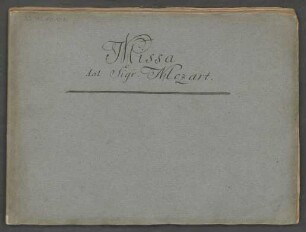 Missa
Del Sigr Mozart.